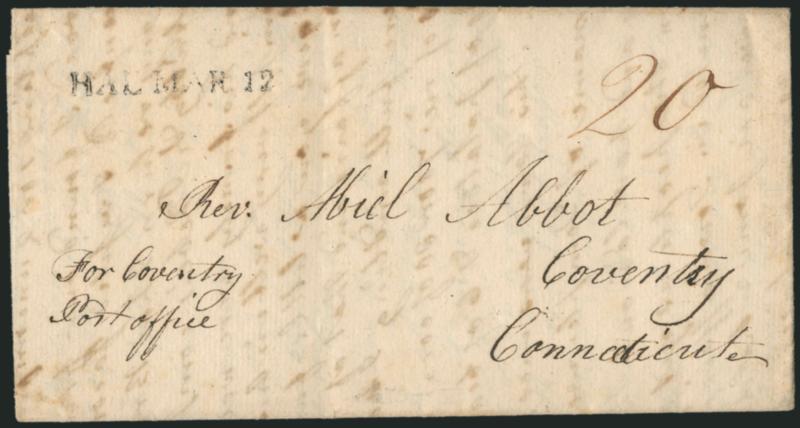 HAL MAR 12
20
Rev. Abiel Abbot
For Coventry
Post office
Coventry
Connecticute